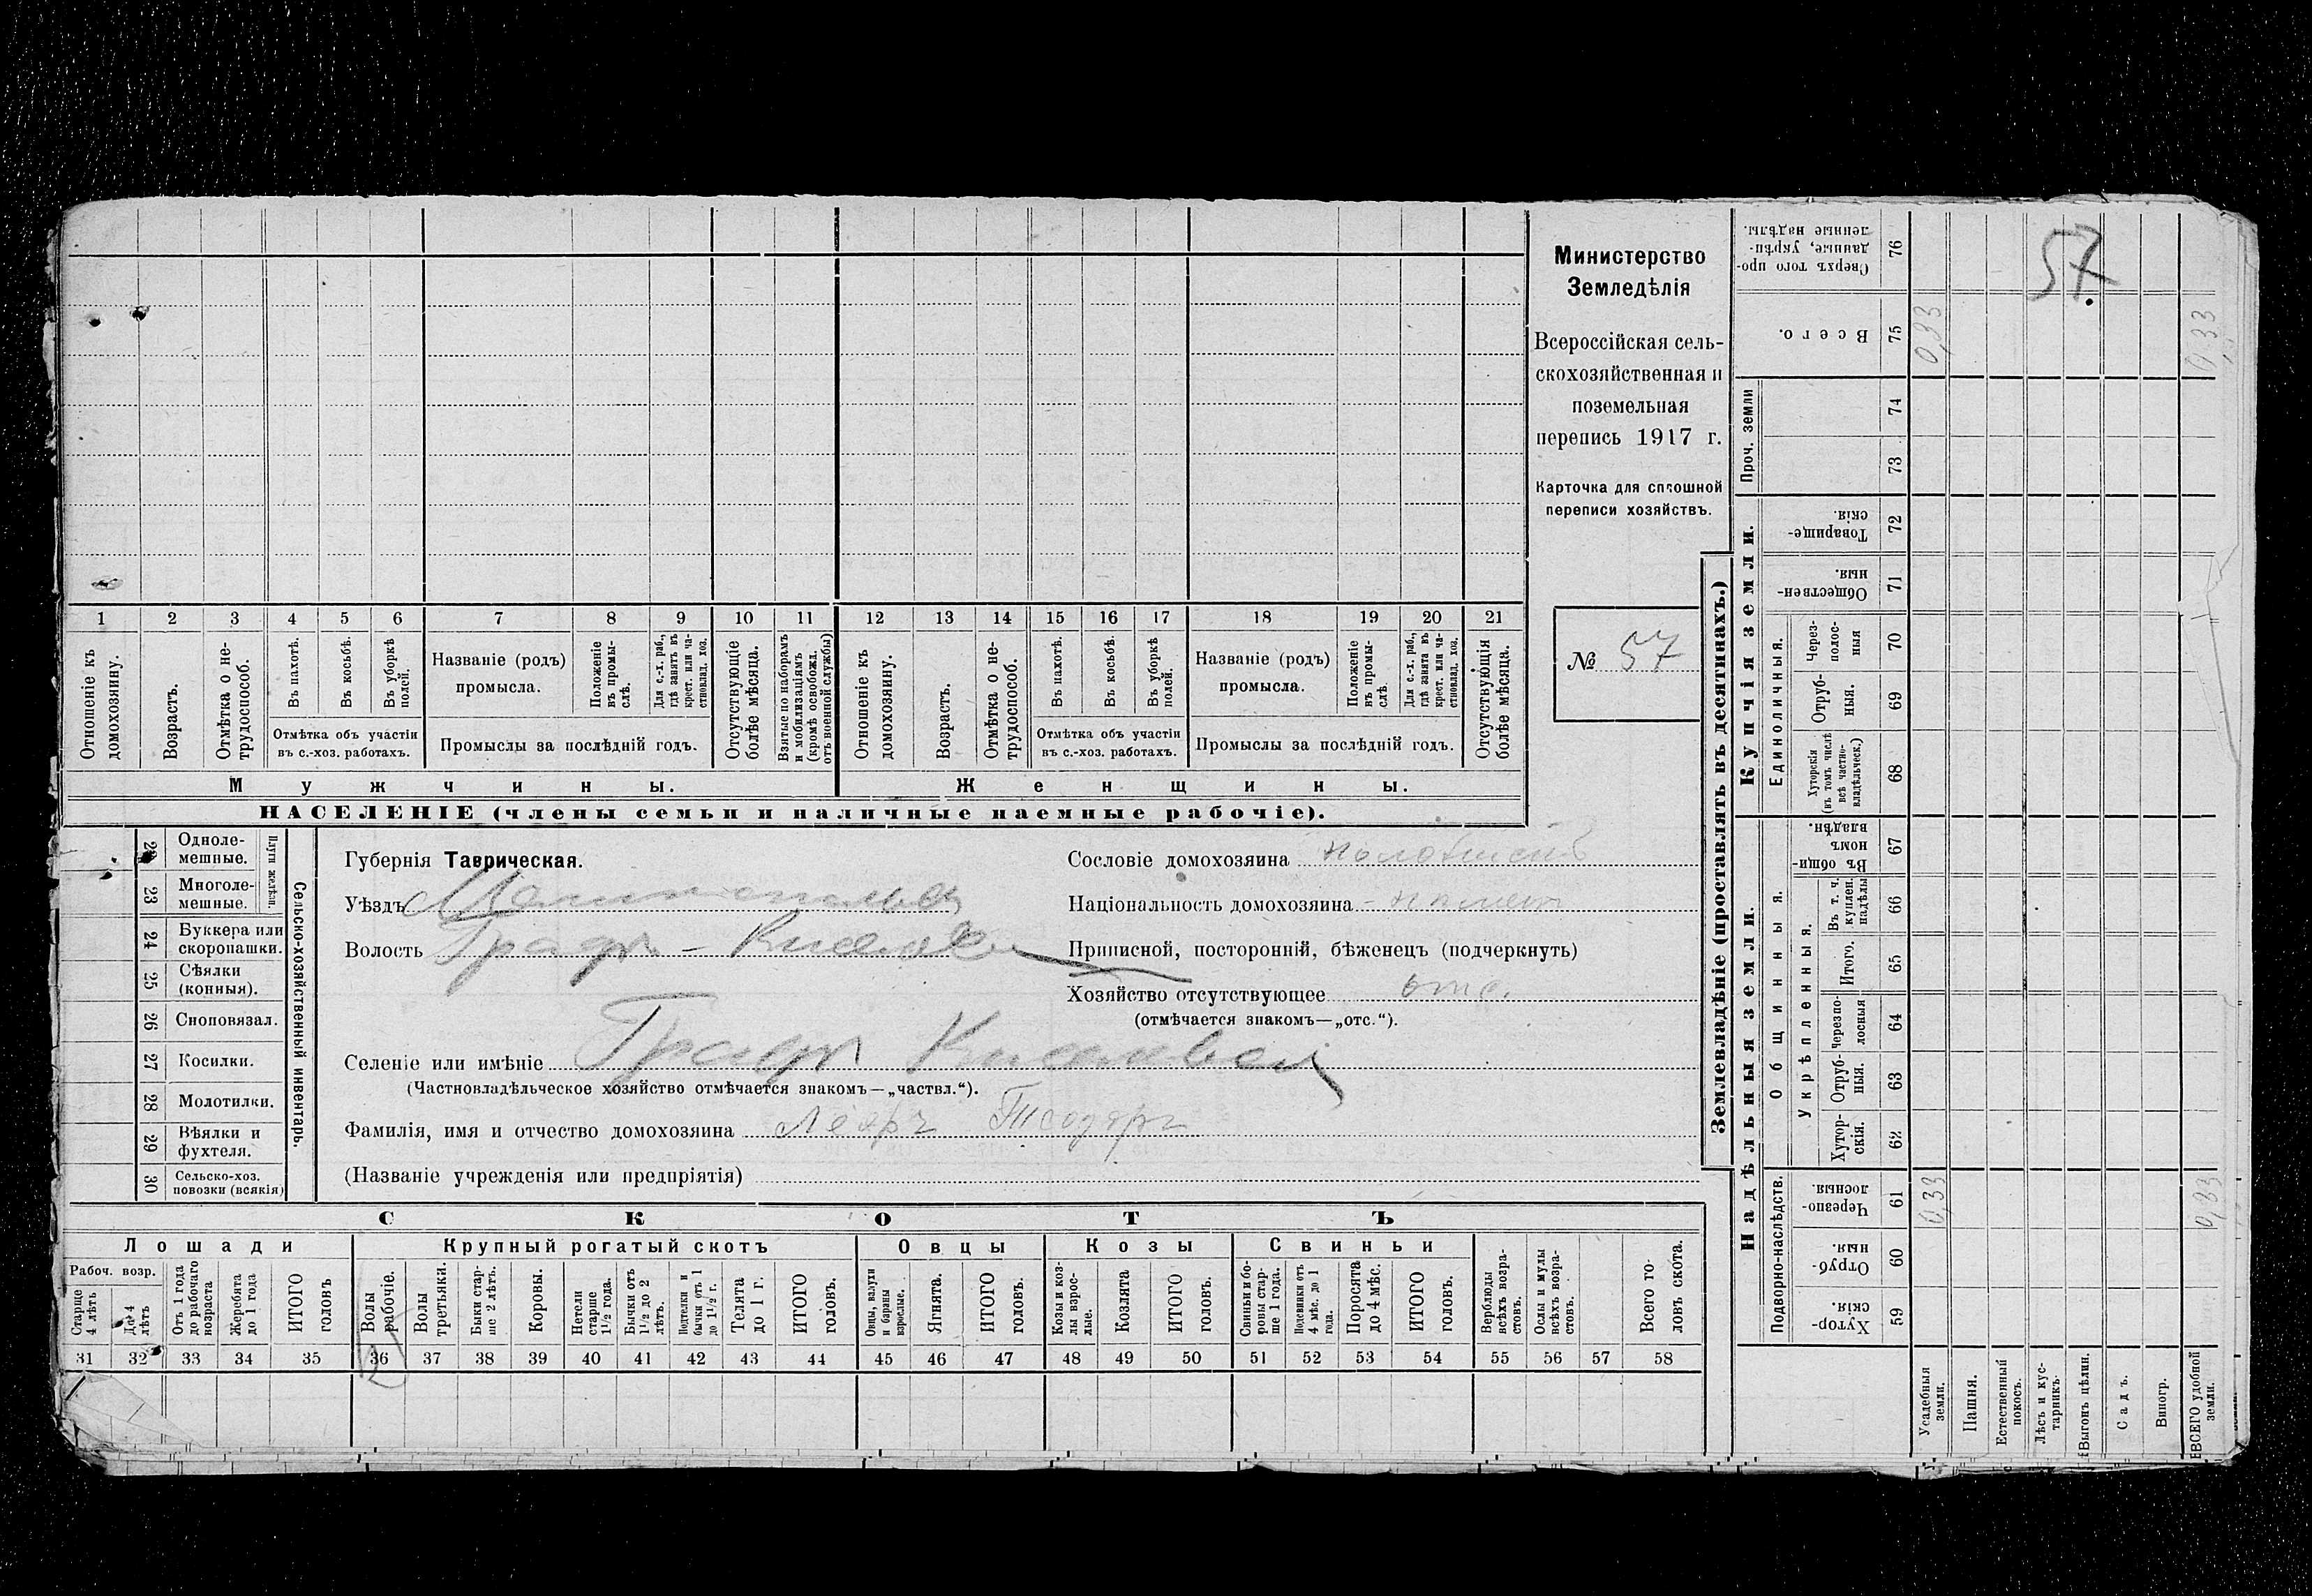 Министерство
Земледѣлія
Всероссійская сель-
скохозяйственная и
поземельная
перепись 1917 г.
Карточка для сплошной
переписи хозяйствъ.
№ 57
1 2 3 4 5 6 7 8 9 10 11 12 13 14 15 16 17 18 19 20 21
Отношеніе къ домохозяину.
Возрастъ.
Отмѣтка о не-трудоспособ.
Въ пахотѣ.
Въ косьбѣ.
Въ уборкѣ полей.
Отмѣтка объ участіи
въ с.-хоз. работахъ.
Названіе (родъ)
промысла.
Положеніе въ промы-слѣ.
Для с.-х. раб., гдѣ занятъ въ крест. или ча-стновлад. хоз.
Промыслы за послѣдній годъ.
Отсутствующіе болѣе мѣсяца.
Взятые по наборамъ и мобилизаціямъ (кромѣ освобожд. отъ военной службы)
Отношеніе къ домохозяину.
Возрастъ.
Отмѣтка о не-трудоспособ.
Въ пахотѣ.
Въ косьбѣ.
Въ уборкѣ полей.
Отмѣтка объ участіи
въ с.-хоз. работахъ.
Названіе (родъ)
промысла.
Положеніе въ промы-слѣ.
Для с.-х. раб., гдѣ занята въ крест. или ча-стновлад. хоз.
Промыслы за послѣдній годъ.
Отсутствующія болѣе мѣсяца.
Мужчины.
Женщины.
НАСЕЛЕНІЕ (члены семьи и наличные наемные рабочіе).
Сельско-хозяйственный инвентарь.
Плуги желѣзн.
22 Одноле-мешные.
23 Многоле-мешные.
24 Буккера или скоропашки.
25 Сѣялки (конныя).
26 Сноповязал.
27 Косилки.
28 Молотилки.
29 Вѣялки и фухтеля.
30 Сельско-хоз. повозки (всякія)
Губернія Таврическая.
Уѣздъ
Волость Граф. - Кисел
Селеніе или имѣніе Граф
(Частновладѣльческое хозяйство отмѣчается знакомъ—„частвл.“).
Фамилія, имя и отчество домохозяина Теодоръ
(Названіе учрежденія или предпріятія)
Сословіе домохозяина
Національность домохозяина
Приписной, посторонній, бѣженецъ (подчеркнуть)
Хозяйство отсутствующее отс.
(отмѣчается знакомъ—„отс.“).
СКОТЪ
Лошади
Крупный рогатый скотъ
Овцы
Козы
Свиньи
Рабоч. возр.
Старше 4 лѣтъ
До 4 лѣтъ
Отъ 1 года до рабочаго возраста
Жеребята до 1 года
ИТОГО головъ
Волы рабочіе.
Волы третьяки.
Быки стар-ше 2 лѣтъ.
Коровы.
Нетели старше 1½ года.
Бычки отъ 1½ до 2 лѣтъ.
Подтелки и бычки отъ 1 до 1½ г.
Телята до 1 г.
ИТОГО головъ.
Овцы, валухи и бараны взрослые.
Ягнята.
ИТОГО головъ.
Козы и коз-лы взрос-лые.
Козлята
ИТОГО головъ.
Свиньи и бо-ровы стар-ше 1 года.
Подсвинки отъ 4 мѣс. до 1 года.
Поросята до 4 мѣс.
ИТОГО головъ.
Верблюды всѣхъ возра-стовъ.
Ослы и мулы всѣхъ возра-стовъ.
Всего го-ловъ скота.
31 32 33 34 35 36 37 38 39 40 41 42 43 44 45 46 47 48 49 50 51 52 53 54 55 56 57 58
Землевладѣніе (проставлять въ десятинахъ.)
57
Купчія земли.
Сверхъ того про-данные, укрѣп-ленные надѣлы. 76
Всего. 75 0,33 0,33
Проч. земли 74 73
Товарище-скія. 72
Обществен-ныя. 71
Единоличныя.
Через-полос-ныя 70
Отруб-ныя. 69
Хуторскія (въ томъ числѣ всѣ частно-владѣльческ.) 68
Надѣльныя земли.
Общинныя.
Въ общи-номъ владѣн. 67
Укрѣпленныя.
Въ т. ч. куплен. надѣлы 66
Итого. 65
Черезпо-лосныя 64
Отруб-ныя. 63
Хутор-скія. 62
Подворно-наслѣдств.
Черезпо-лосныя. 61 0,33 0,33
Отруб-ныя. 60
Хутор-скія. 59
Усадебныя земли.
Пашня.
Естественный покосъ.
Лѣсъ и кус-тарникъ.
Выгонъ цѣлин.
Садъ.
Виногр.
ВСЕГО удобной земли.